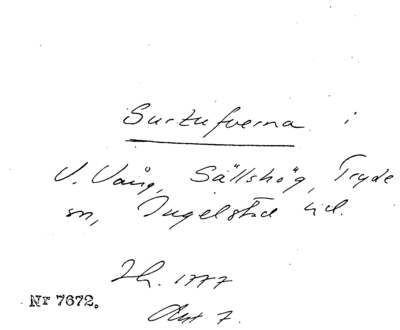 Surtufverna i
V. Vång, Sällshög, Tryde
sn, Ingelstad hd.
Lh. 1777
Akt 7.
Nr 7672.